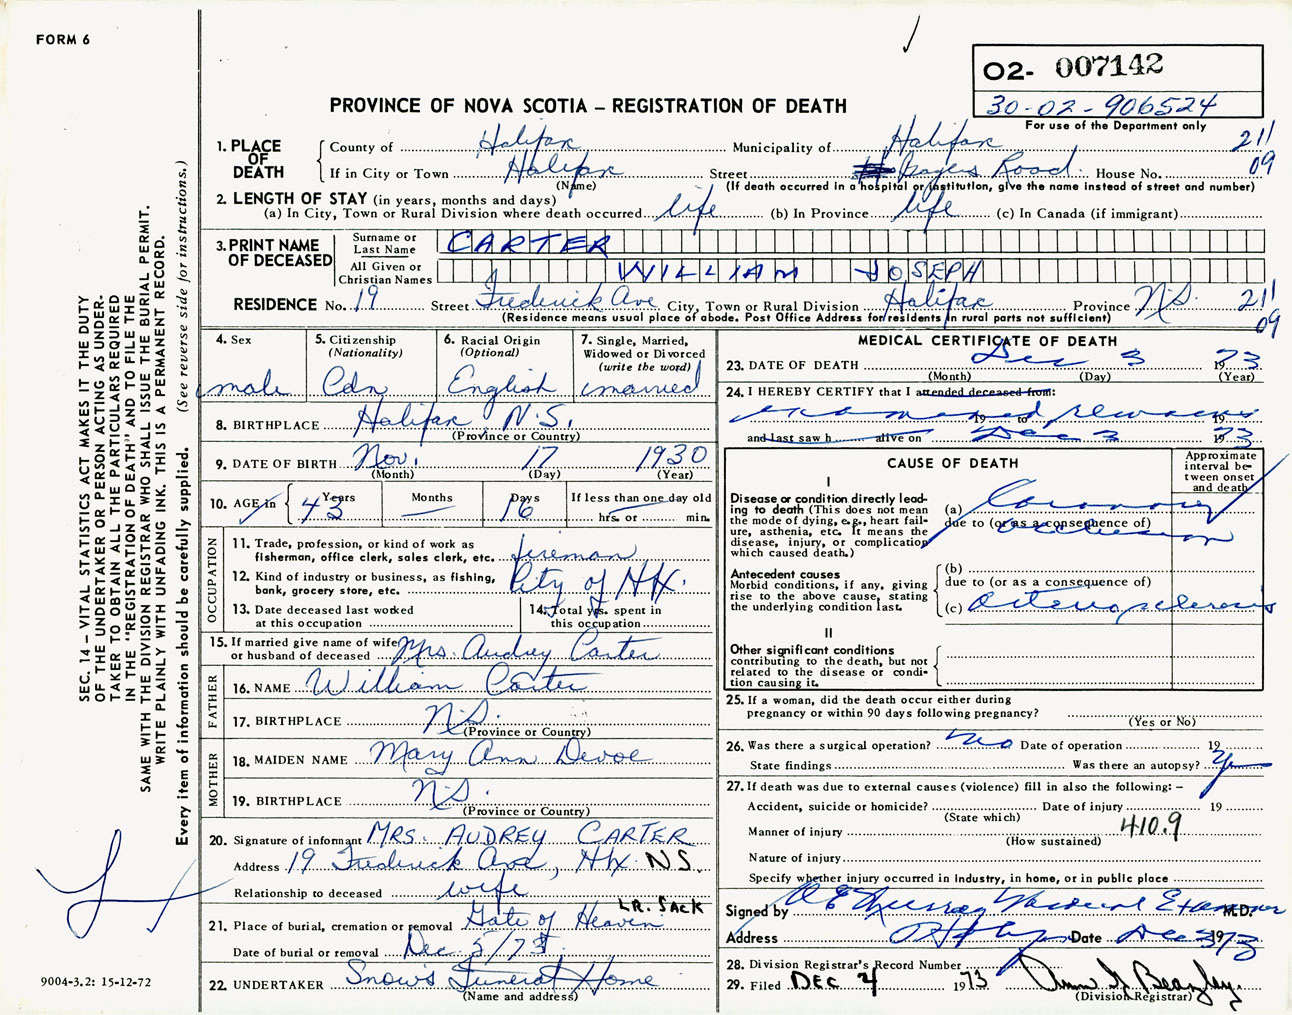 FORM 6
O2- 007142
30-02-906524
For use of the Department only
PROVINCE OF NOVA SCOTIA – REGISTRATION OF DEATH
1. PLACE OF DEATH
County of Halifax Municipality of Halifax 211
If in City or Town Halifax Street Bayers Road House No. 09
(Name) (If death occurred in a hospital or institution, give the name instead of street and number)
2. LENGTH OF STAY (in years, months and days)
(a) In City, Town or Rural Division where death occurred life (b) In Province life (c) In Canada (if immigrant)
3. PRINT NAME OF DECEASED
Surname or Last Name CARTER
All Given or Christian Names WILLIAM JOSEPH
RESIDENCE No. 19 Street Frederick Ave City, Town or Rural Division Halifax Province N.S. 211
(Residence means usual place of abode. Post Office Address for residents in rural parts not sufficient) 09
4. Sex male
5. Citizenship (Nationality) Cdn
6. Racial Origin (Optional) English
7. Single, Married, Widowed or Divorced (write the word) married
8. BIRTHPLACE Halifax N.S.
(Province or Country)
9. DATE OF BIRTH Nov. 17 1930
(Month) (Day) (Year)
10. AGE in Years 43 Months — Days 16 If less than one day old
hrs. or min.
OCCUPATION
11. Trade, profession, or kind of work as fisherman, office clerk, sales clerk, etc. fireman
12. Kind of industry or business, as fishing, bank, grocery store, etc. City of Hfx.
13. Date deceased last worked at this occupation
14. Total yrs. spent in this occupation
15. If married give name of wife or husband of deceased Mrs. Audrey Carter
FATHER
16. NAME William Carter
17. BIRTHPLACE N.S.
(Province or Country)
MOTHER
18. MAIDEN NAME Mary Ann Devoe
19. BIRTHPLACE N.S.
(Province or Country)
20. Signature of informant MRS. AUDREY CARTER
Address 19 Frederick Ave, Hfx N.S.
Relationship to deceased wife
21. Place of burial, cremation or removal Gate of Heaven LR. SACK
Date of burial or removal Dec 5/73
22. UNDERTAKER Snow's Funeral Home
(Name and address)
MEDICAL CERTIFICATE OF DEATH
23. DATE OF DEATH Dec 3 1973
(Month) (Day) (Year)
24. I HEREBY CERTIFY that I attended deceased from:
examined remains 19 to 19
and last saw h alive on Dec 3 1973
CAUSE OF DEATH
Approximate interval between onset and death
I
Disease or condition directly leading to death (This does not mean the mode of dying, e.g., heart failure, asthenia, etc. It means the disease, injury, or complication which caused death.)
(a) Coronary
due to (or as a consequence of) occlusion
Antecedent causes
Morbid conditions, if any, giving rise to the above cause, stating the underlying condition last.
(b)
due to (or as a consequence of)
(c) Arteriosclerosis
II
Other significant conditions
contributing to the death, but not related to the disease or condition causing it.
25. If a woman, did the death occur either during pregnancy or within 90 days following pregnancy?
(Yes or No)
26. Was there a surgical operation? no Date of operation 19
State findings Was there an autopsy?
27. If death was due to external causes (violence) fill in also the following: –
Accident, suicide or homicide? Date of injury 19
(State which)
Manner of injury 410.9
(How sustained)
Nature of injury
Specify whether injury occurred in industry, in home, or in public place
Signed by Medical Examiner M.D.
Address Date Dec 3 1973
28. Division Registrar's Record Number
29. Filed DEC 4 1973
(Division Registrar)
SEC. 14 – VITAL STATISTICS ACT MAKES IT THE DUTY
OF THE UNDERTAKER OR PERSON ACTING AS UNDERTAKER
TO OBTAIN ALL THE PARTICULARS REQUIRED
IN THE "REGISTRATION OF DEATH" AND TO FILE THE
SAME WITH THE DIVISION REGISTRAR WHO SHALL ISSUE THE BURIAL PERMIT.
WRITE PLAINLY WITH UNFADING INK. THIS IS A PERMANENT RECORD.
Every item of information should be carefully supplied. (See reverse side for instructions.)
9004-3.2: 15-12-72